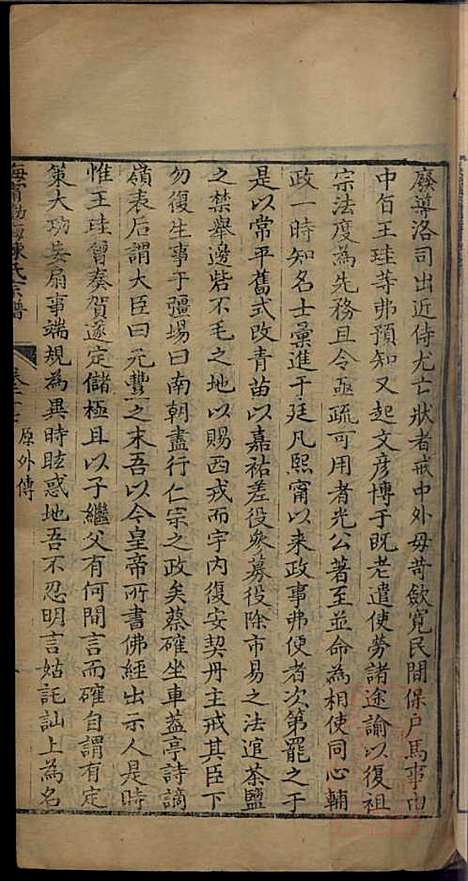 廢導洛司出近侍尤亡狀者戒中外毋苛斂寬民間保戶馬事由
中旨王珪等弗預知又起文彥博于既老遣使勞諸途諭以復祖
宗法度為先務且令亟疏可用者光公著至並命為相使同心輔
政一時知名士彙進于廷凡熙寧以来政事弗便者次第罷之于
是以常平舊式改青苗以嘉祐差役叅募役除市易之法逭茶鹽
之禁舉邊砦不毛之地以賜西戎而宇内復安契丹主戒其臣下
勿復生事于彊場曰南朝盡行仁宗之政矣蔡確坐車葢亭詩謫
嶺表后謂大臣曰元豐之末吾以今皇帝所書佛經出示人是時
惟王珪曾奏賀遂定儲極且以子繼父有何間言而確自謂有定
策大功妄扇事端規為異時眩惑地吾不忍明言姑託訕上為名
海寧渤海陳氏宗譜 卷二十 原外傳